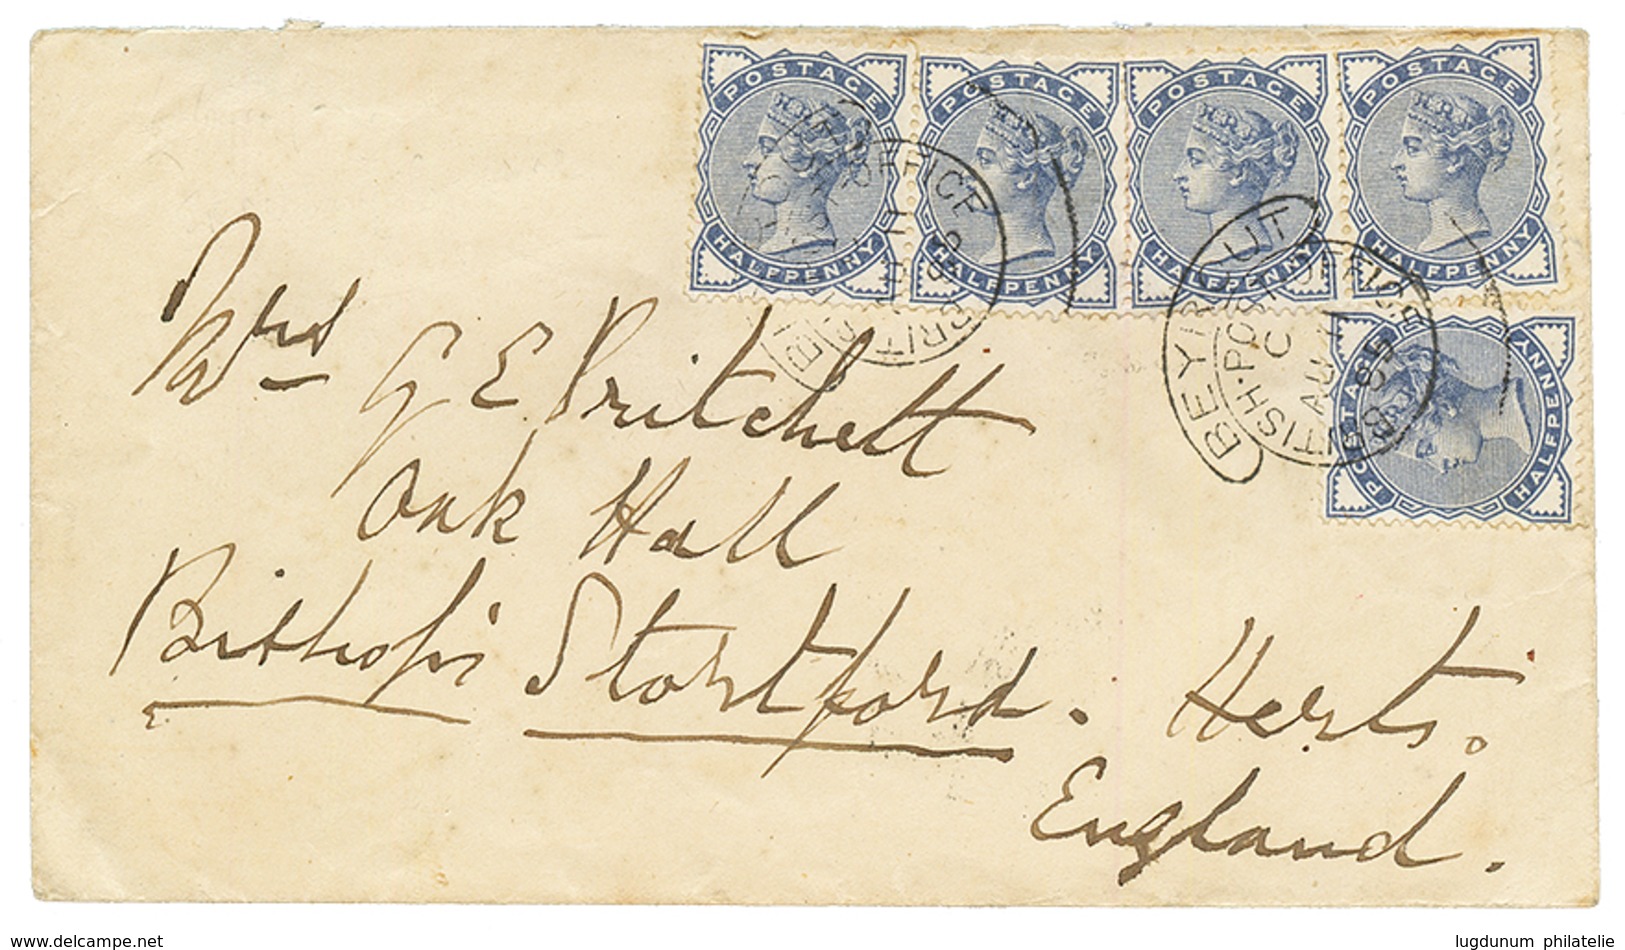 POSTAGE POSTAGE POSTAGE POSTAGE
HALFPENNY HALFPENNY HALFPENNY HALFPENNY
POSTAGE
HALFPENNY
BEYROUT
BRITISH·POST·OFFICE
C
AU 11
85
OFFICE
BRITISH
Mrs G E Pritchett
Oak Hall
Bishop's Stortford. Herts.
England.
www.delcampe.net
lugdunum philatelie